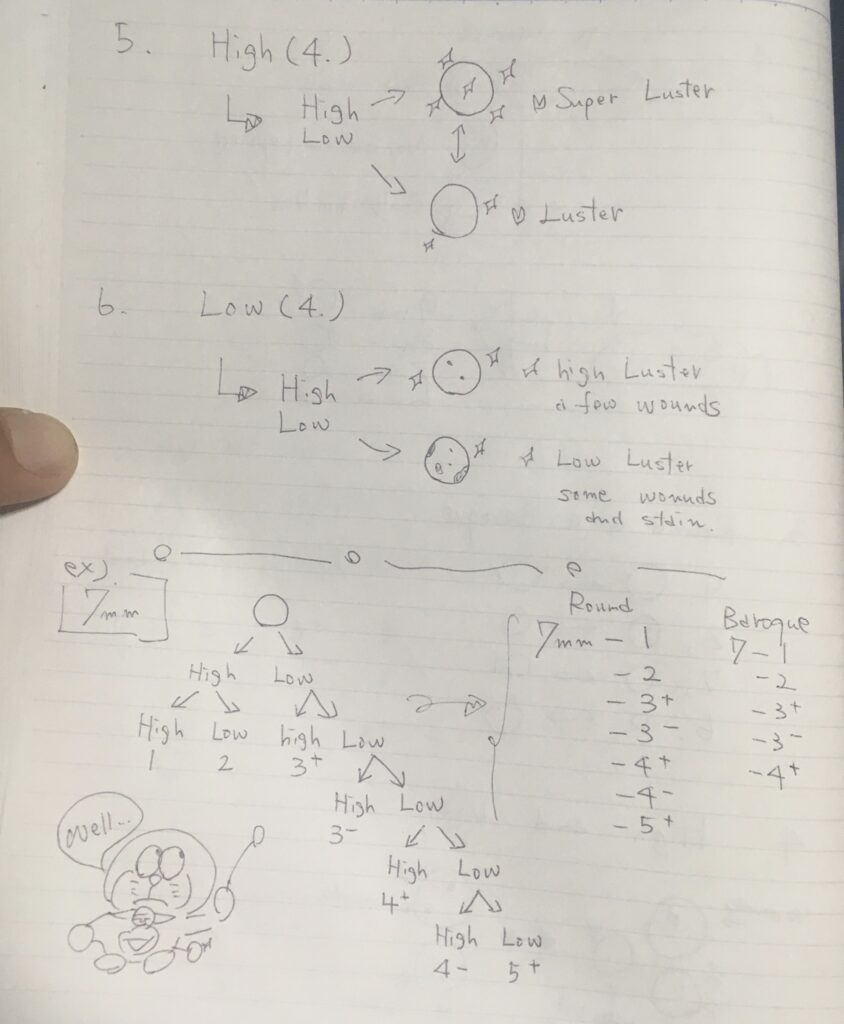 5. High (4.)
High
Low
Super Luster
Luster
6. Low (4.)
High
Low
high Luster
a few wounds
Low Luster
some wounds
and stain.
ex).
7mm
High Low
High Low high Low
1 2 3+
High Low
3-
High Low
4+
High Low
4- 5+
Round
7mm - 1
- 2
- 3+
- 3-
- 4+
- 4-
- 5+
Baroque
7 - 1
- 2
- 3+
- 3-
- 4+